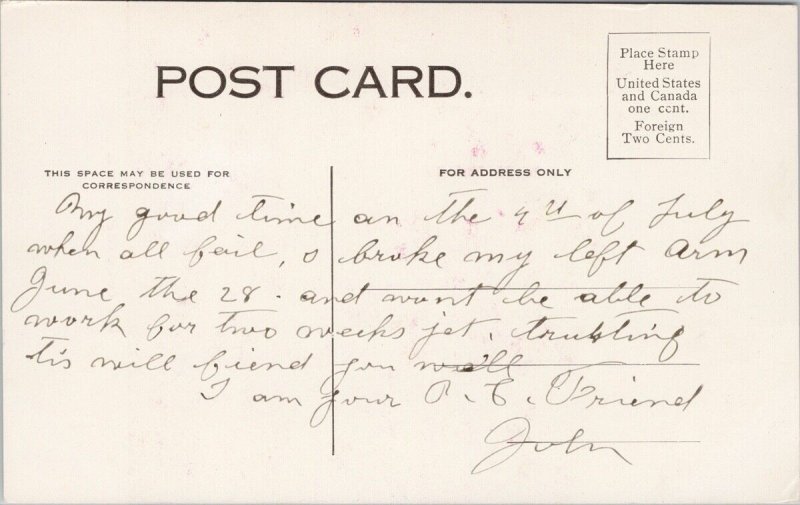 POST CARD.
Place Stamp
Here
United States
and Canada
one cent.
Foreign
Two Cents.
THIS SPACE MAY BE USED FOR
CORRESPONDENCE
FOR ADDRESS ONLY
My good time on the 4th of July
when all fail, o broke my left arm
June the 28. and wont be able to
work for two weeks jet, trusting
tis will fiend you well
I am your P. C. Friend
John